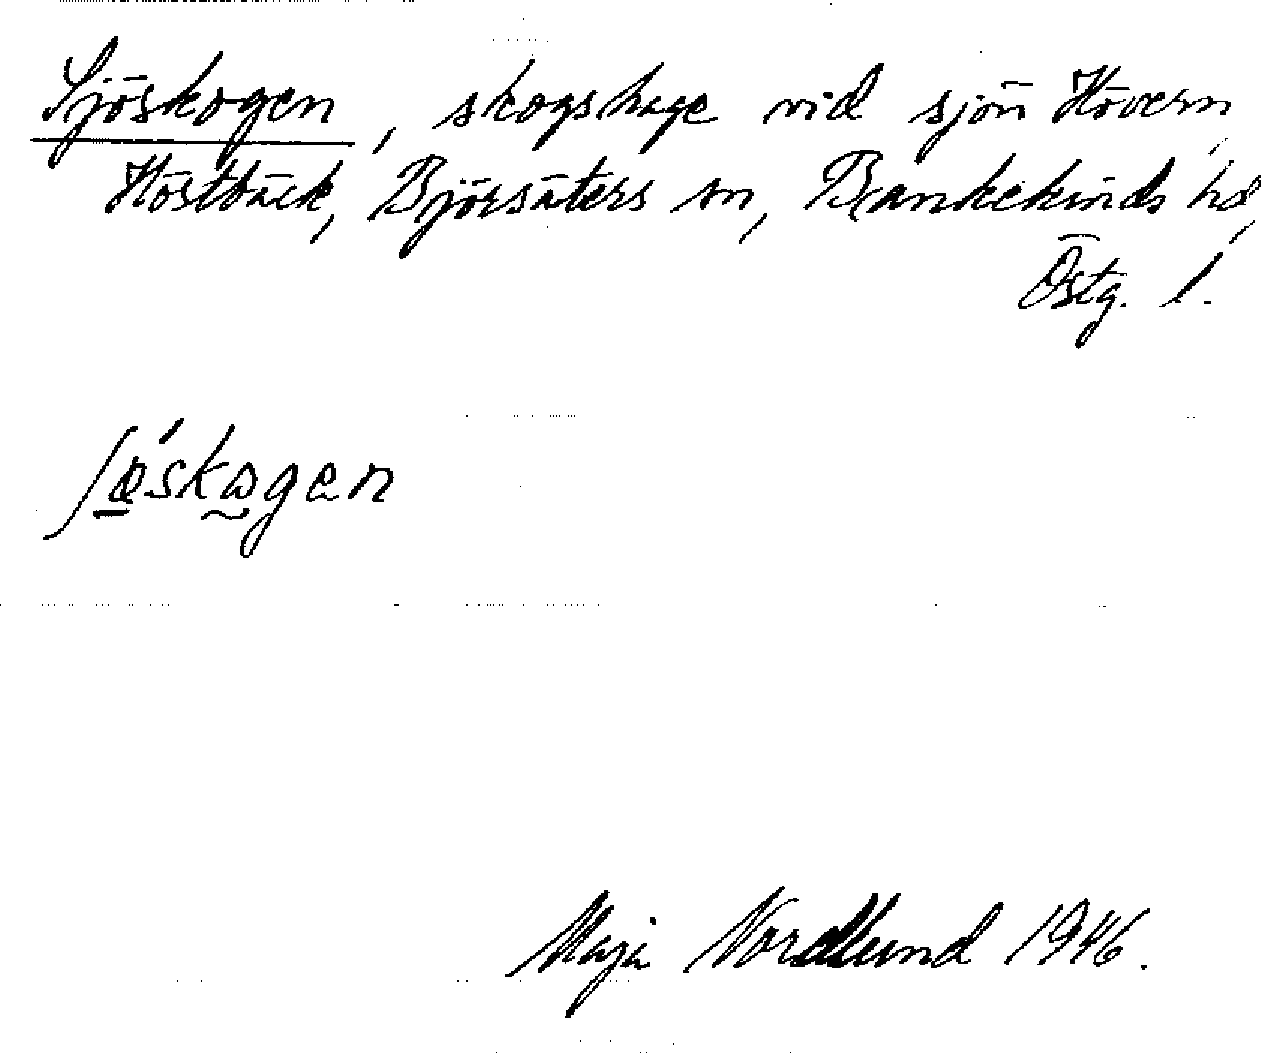 Sjöskogen, skogshage vid sjön Hövern,
Höstbäck, Björsäters sn, Bankekinds hd,
Östg. l.
ʃøskωgen
Maja Nordlund 1946.